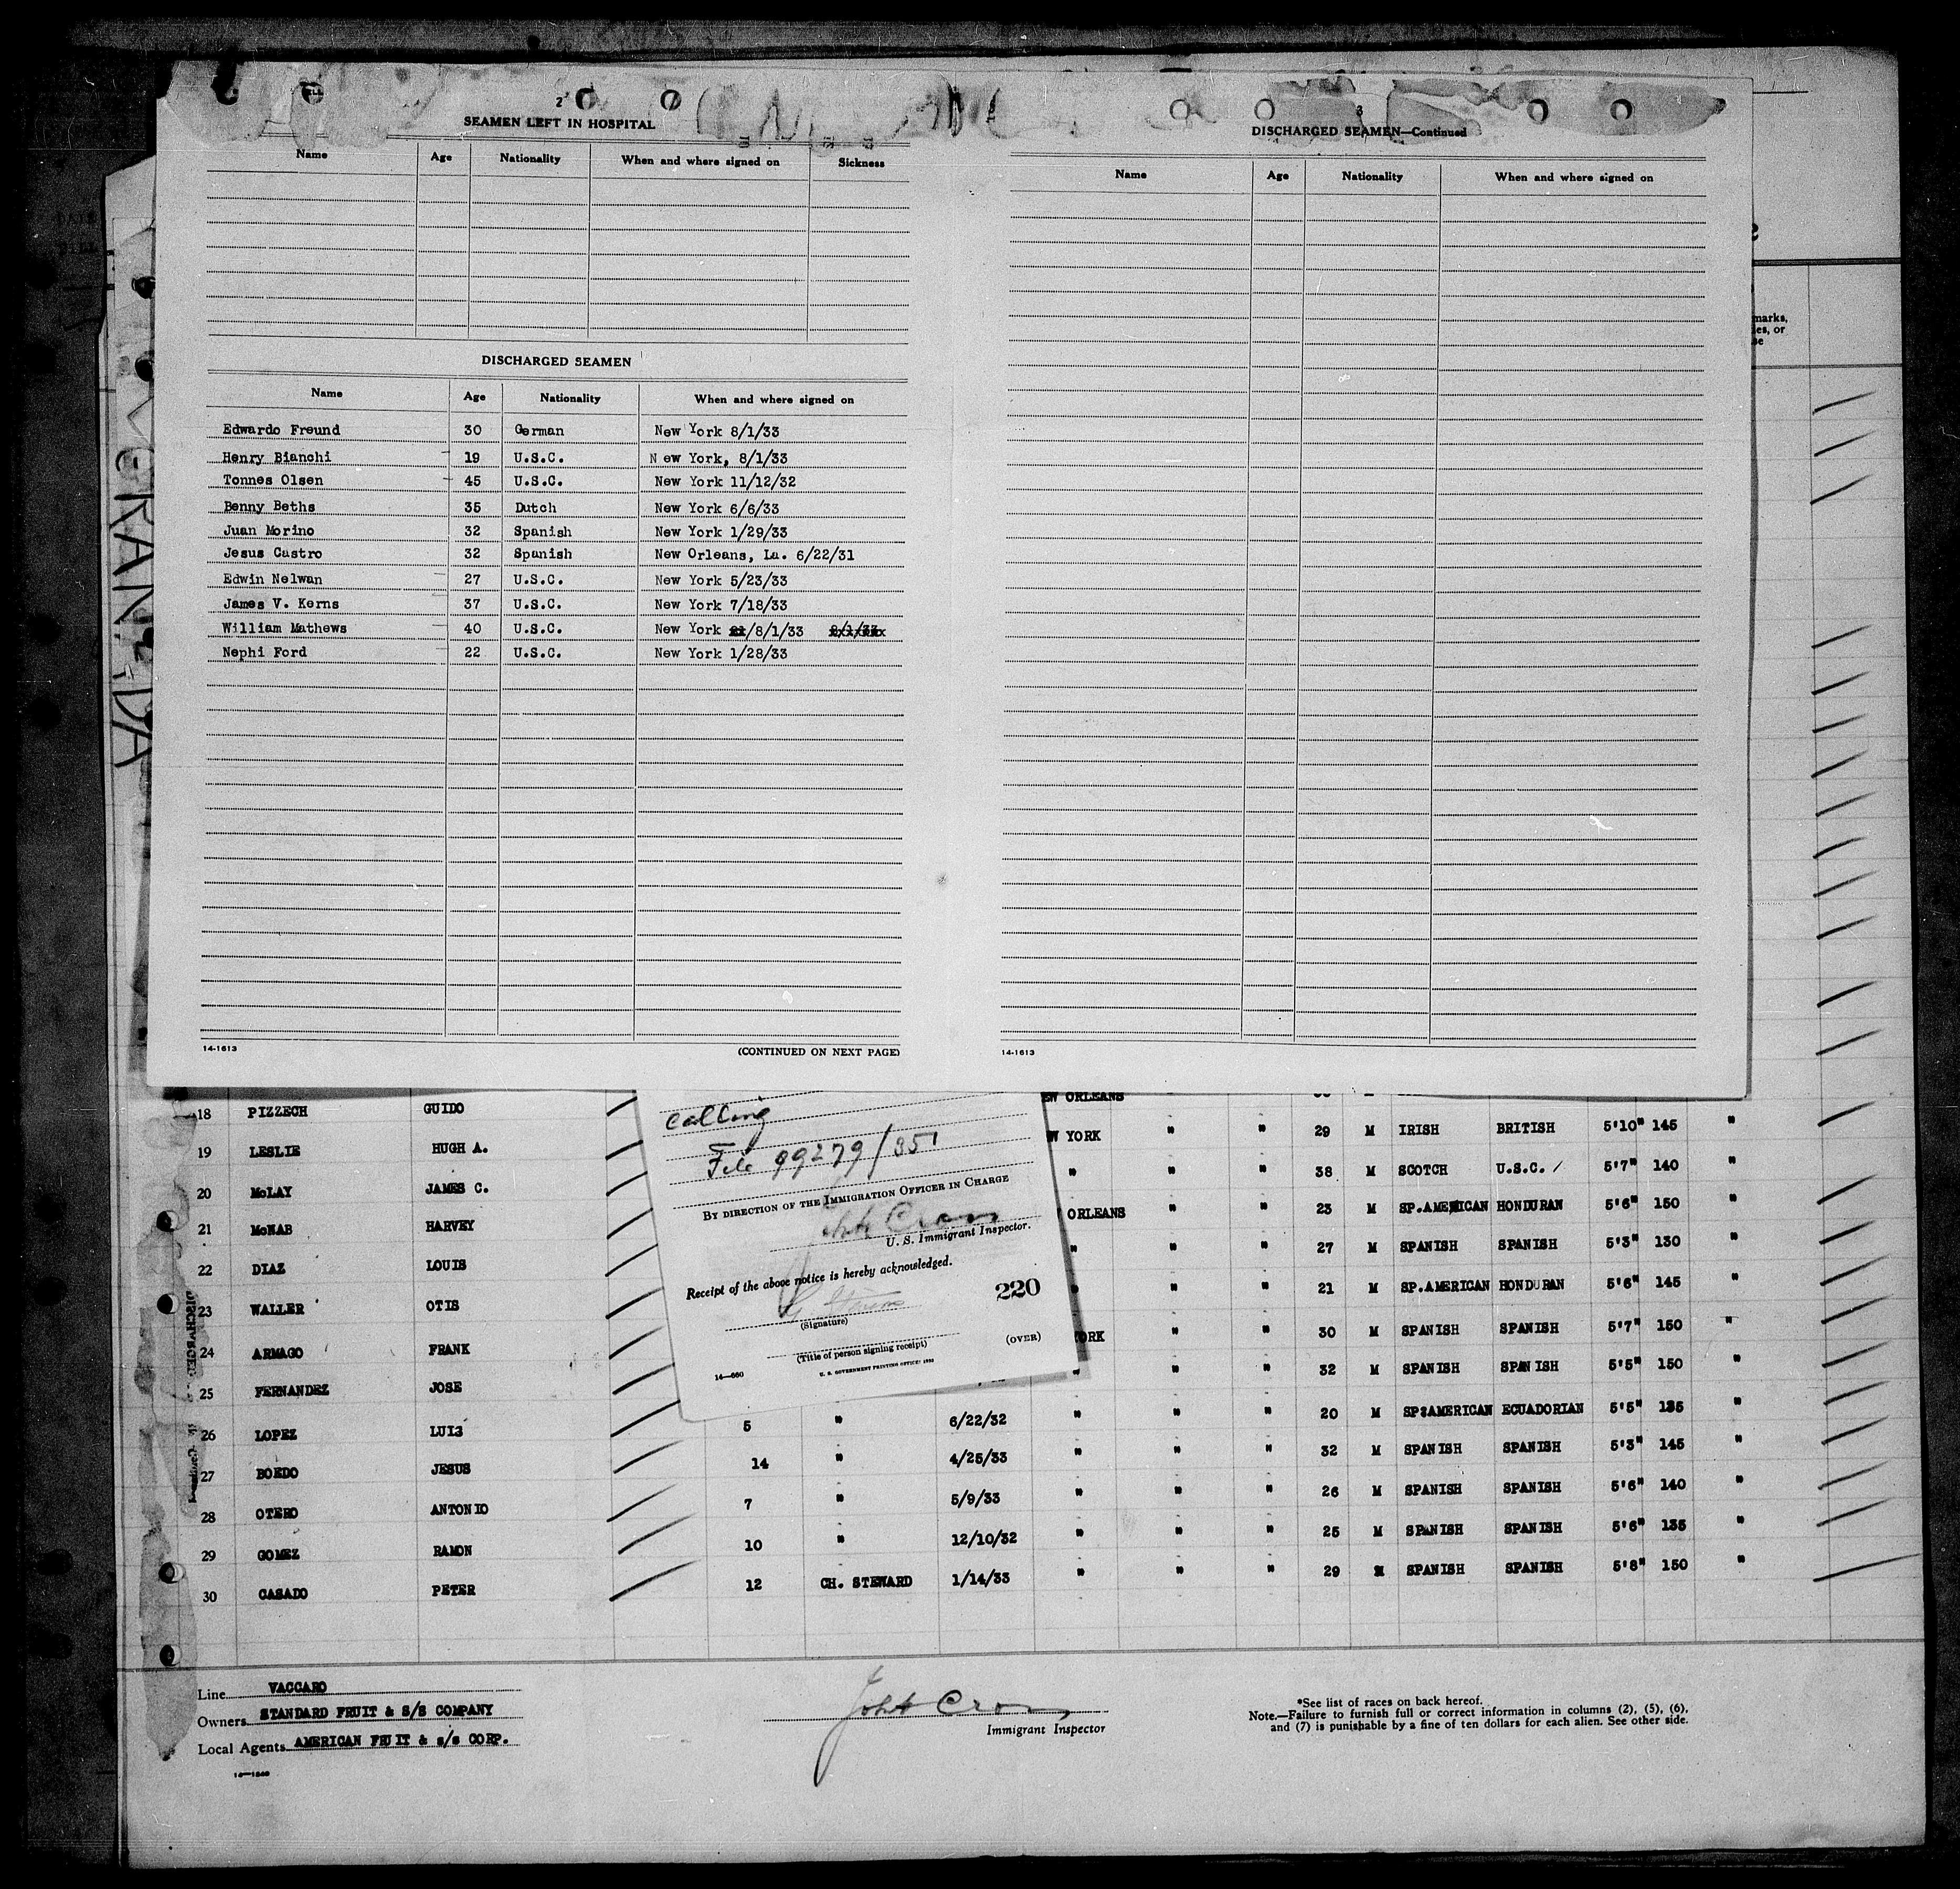 2
SEAMEN LEFT IN HOSPITAL
Name Age Nationality When and where signed on Sickness
DISCHARGED SEAMEN
Name Age Nationality When and where signed on
Edwardo Freund 30 German New York 8/1/33
Henry Bianchi 19 U.S.C. New York, 8/1/33
Tonnes Olsen 45 U.S.C. New York 11/12/32
Benny Beths 35 Dutch New York 6/6/33
Juan Morino 32 Spanish New York 1/29/33
Jesus Castro 32 Spanish New Orleans, La. 6/22/31
Edwin Nelwan 27 U.S.C. New York 5/23/33
James V. Kerns 37 U.S.C. New York 7/18/33
William Mathews 40 U.S.C. New York /8/1/33
Nephi Ford 22 U.S.C. New York 1/28/33
14-1613 (CONTINUED ON NEXT PAGE)
3
DISCHARGED SEAMEN—Continued
Name Age Nationality When and where signed on
14-1613
marks,
ies, or
se
EW ORLEANS
18 PIZZECH GUIDO W YORK " " 29 M IRISH BRITISH 5'10" 145 "
19 LESLIE HUGH A. " " " 38 M SCOTCH U.S.C. 5'7" 140 "
20 McLAY JAMES C. ORLEANS " " 23 M SP.AMERICAN HONDURAN 5'6" 150 "
21 McNAB HARVEY " " " 27 M SPANISH SPANISH 5'3" 130 "
22 DIAZ LOUIS " " " 21 M SP.AMERICAN HONDURAN 5'6" 145 "
23 WALLER OTIS ORK " " 30 M SPANISH SPANISH 5'7" 150 "
24 ARMAGO FRANK " " " 32 M SPANISH SPANISH 5'5" 150 "
25 FERNANDEZ JOSE 5 " 6/22/32 " " " 20 M SP:AMERICAN ECUADORIAN 5'5" 135 "
26 LOPEZ LUIS 14 " 4/25/33 " " " 32 M SPANISH SPANISH 5'3" 145 "
27 BOEDO JESUS 7 " 5/9/33 " " " 26 M SPANISH SPANISH 5'6" 140 "
28 OTERO ANTONIO 10 " 12/10/32 " " " 25 M SPANISH SPANISH 5'6" 135 "
29 GOMEZ RAMON 12 CH. STEWARD 1/14/33 " " " 29 M SPANISH SPANISH 5'8" 150 "
30 CASADO PETER
calling
File 99279/351
BY DIRECTION OF THE IMMIGRATION OFFICER IN CHARGE
U. S. Immigrant Inspector.
Receipt of the above notice is hereby acknowledged.
220
(Signature)
(OVER)
(Title of person signing receipt)
14—660 U. S. GOVERNMENT PRINTING OFFICE: 1932
Line VACCARO
Owners STANDARD FRUIT & S/S COMPANY
Local Agents AMERICAN FRUIT & s/s CORP.
Immigrant Inspector
*See list of races on back hereof.
Note.—Failure to furnish full or correct information in columns (2), (5), (6),
and (7) is punishable by a fine of ten dollars for each alien. See other side.